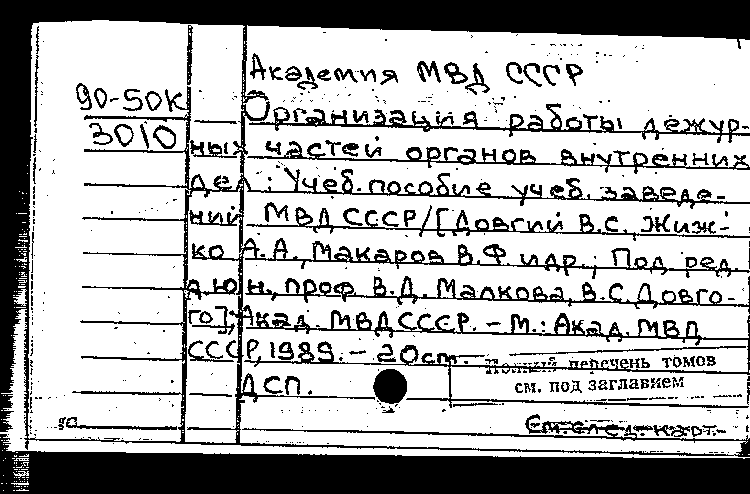 Академия МВД СССР
90-50К
3010
Организация работы дежур-
ных частей органов внутренних
дел : Учеб. пособие учеб. заведе-
ний МВД СССР / [Довгий В.С., Жиж-
ко А.А., Макаров В.Ф. и др.; Под ред.
д.ю.н., проф. В.Д. Малкова, В.С. Довго-
го]; Акад. МВД СССР. – М.: Акад. МВД
СССР, 1989. – 20 см.
Полный перечень томов
см. под заглавием
ДСП.
См. след. карт.